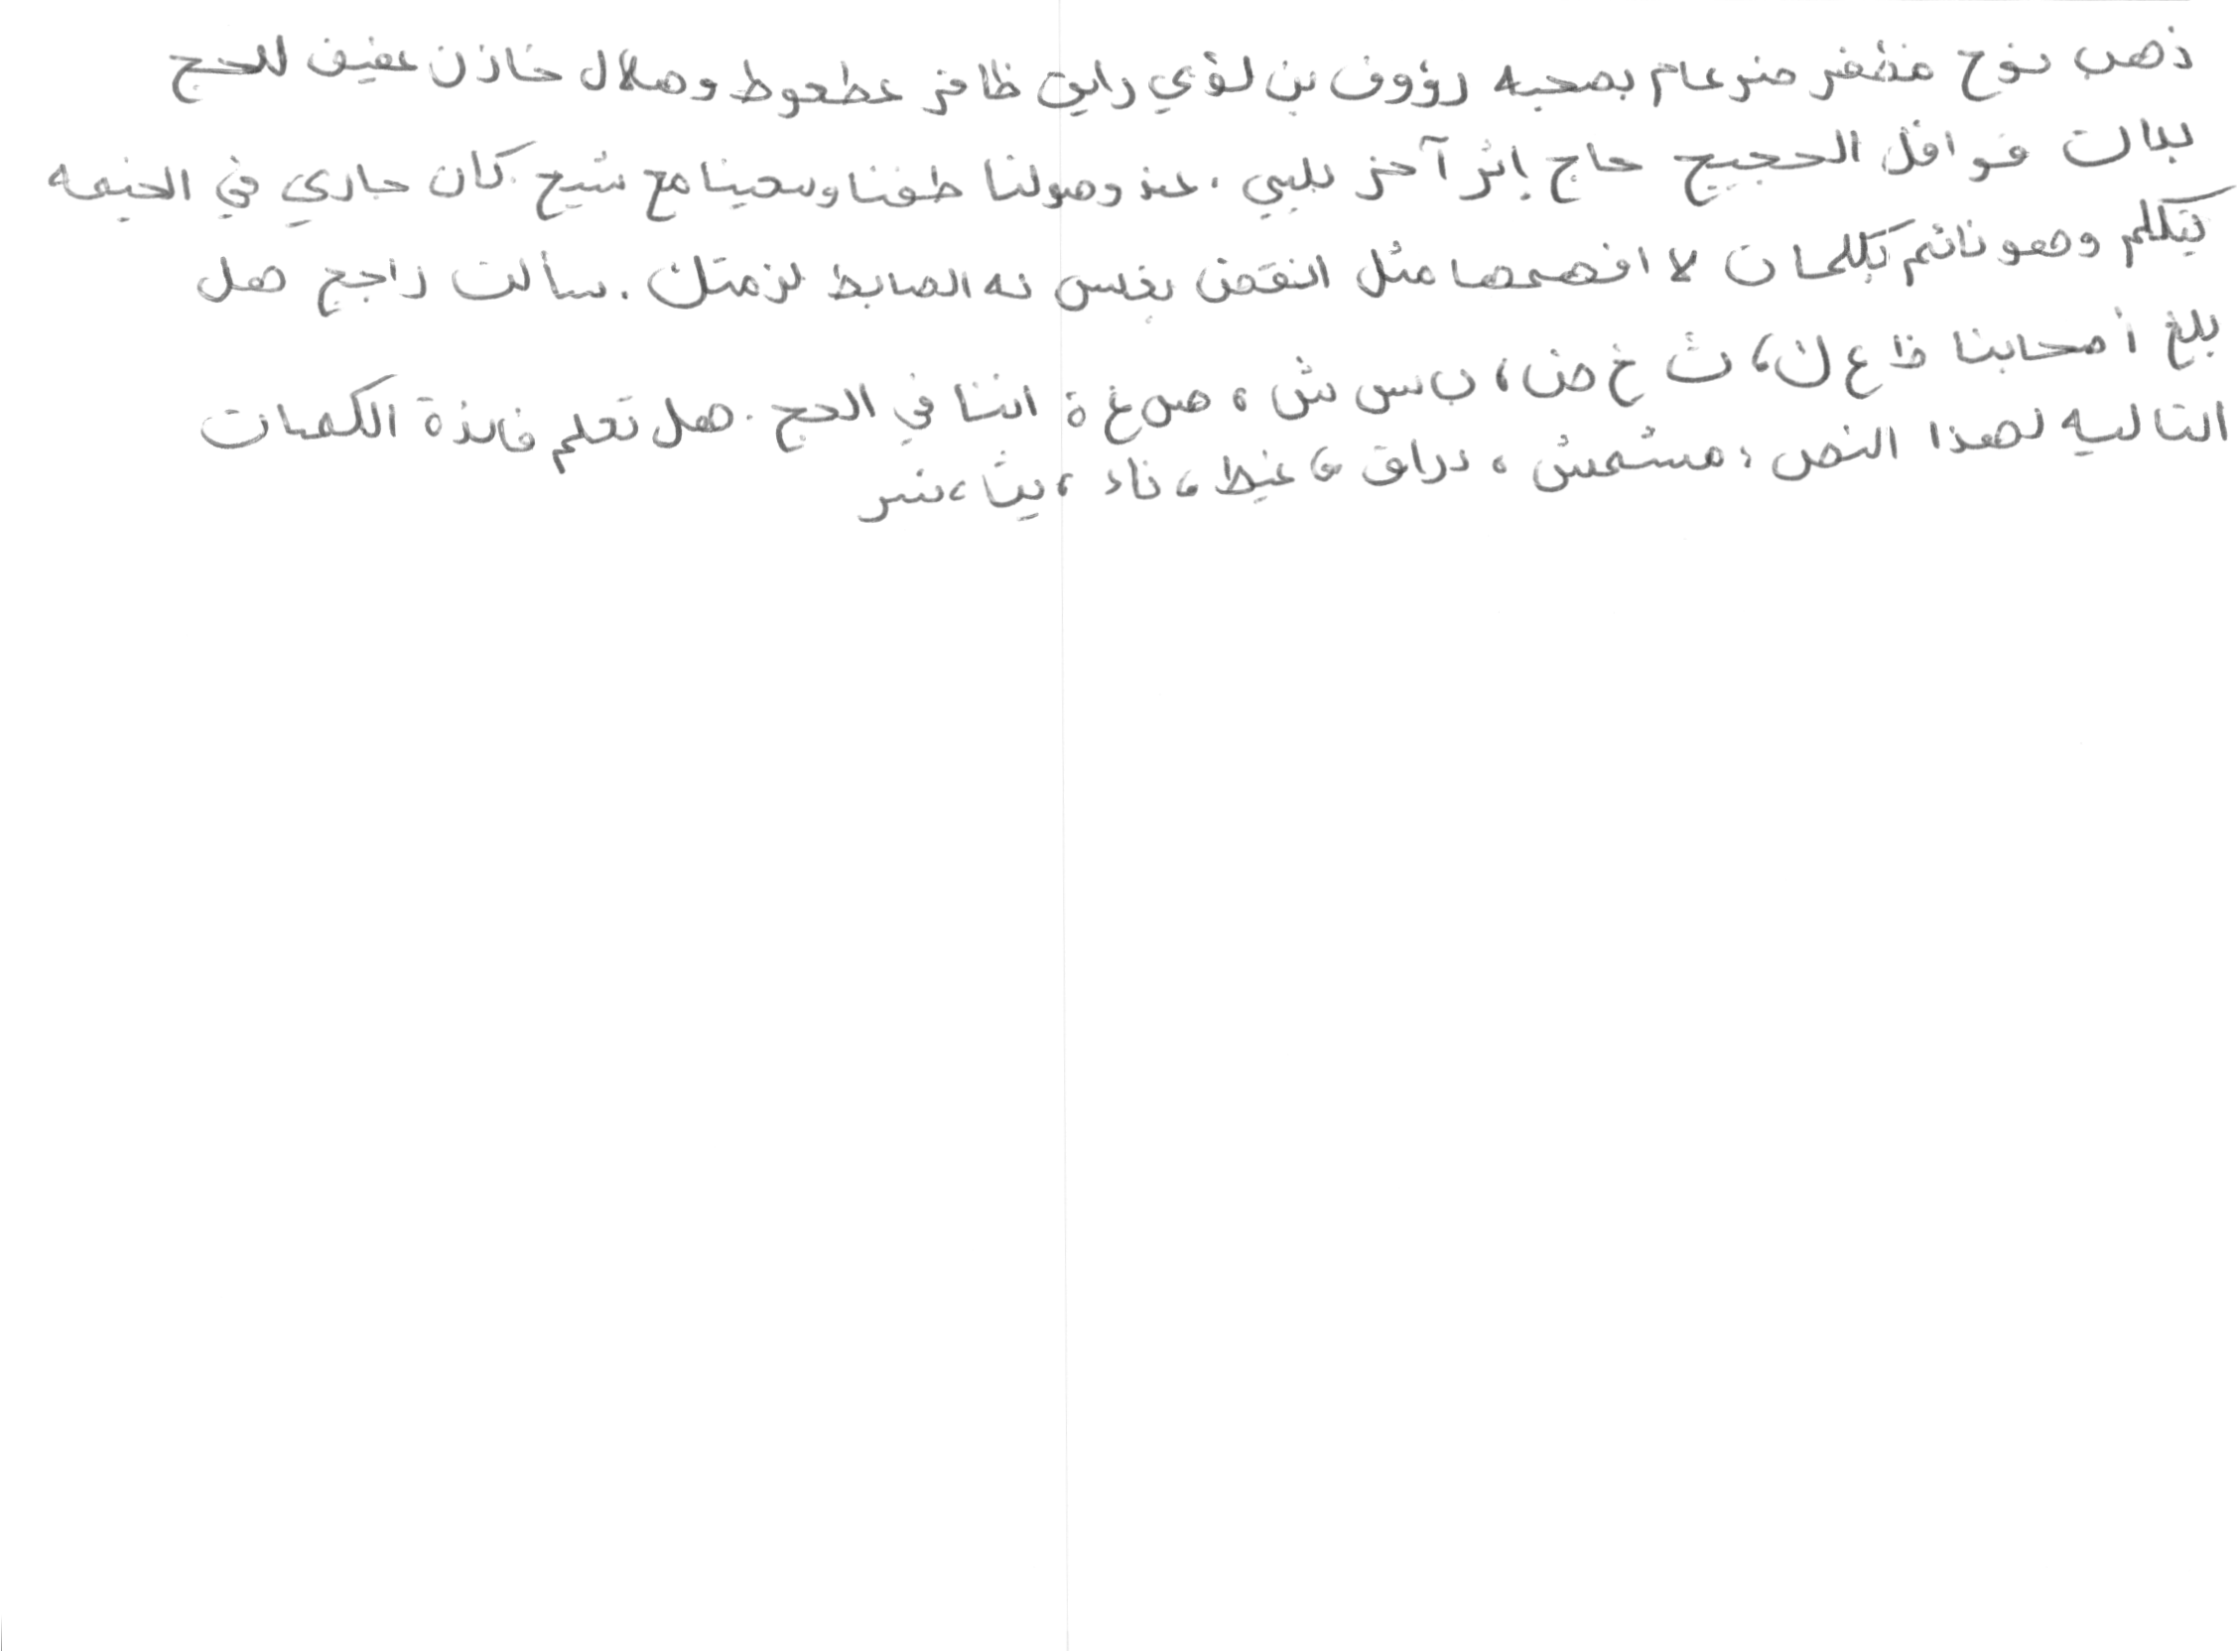 ذهب نوح مظفر ضرغام بصحبه رؤوف بن لؤي رايق ظافر عطعوط وهلال خازن عفيف للحج
بدات قوافل الحجيج حاج إثر آخر بلبي . عند وصولنا طفنا وسعينا مع شيخ . كان جاري في الخيمه
يتكلم وهو نائم بكلمات لا افهمها مثل انقض بغلس نه الضابط لزمتك . سألت راجح هل
بلغ أصحابنا ظ ع ك ، ث خ ض ، ب س ش ، ص غ ة اننا في الحج . هل تعلم فائدة الكلمات
التاليه لهذا النص : مشمش ، دراق ، غيظ ، ناء ، يثا ، نسر